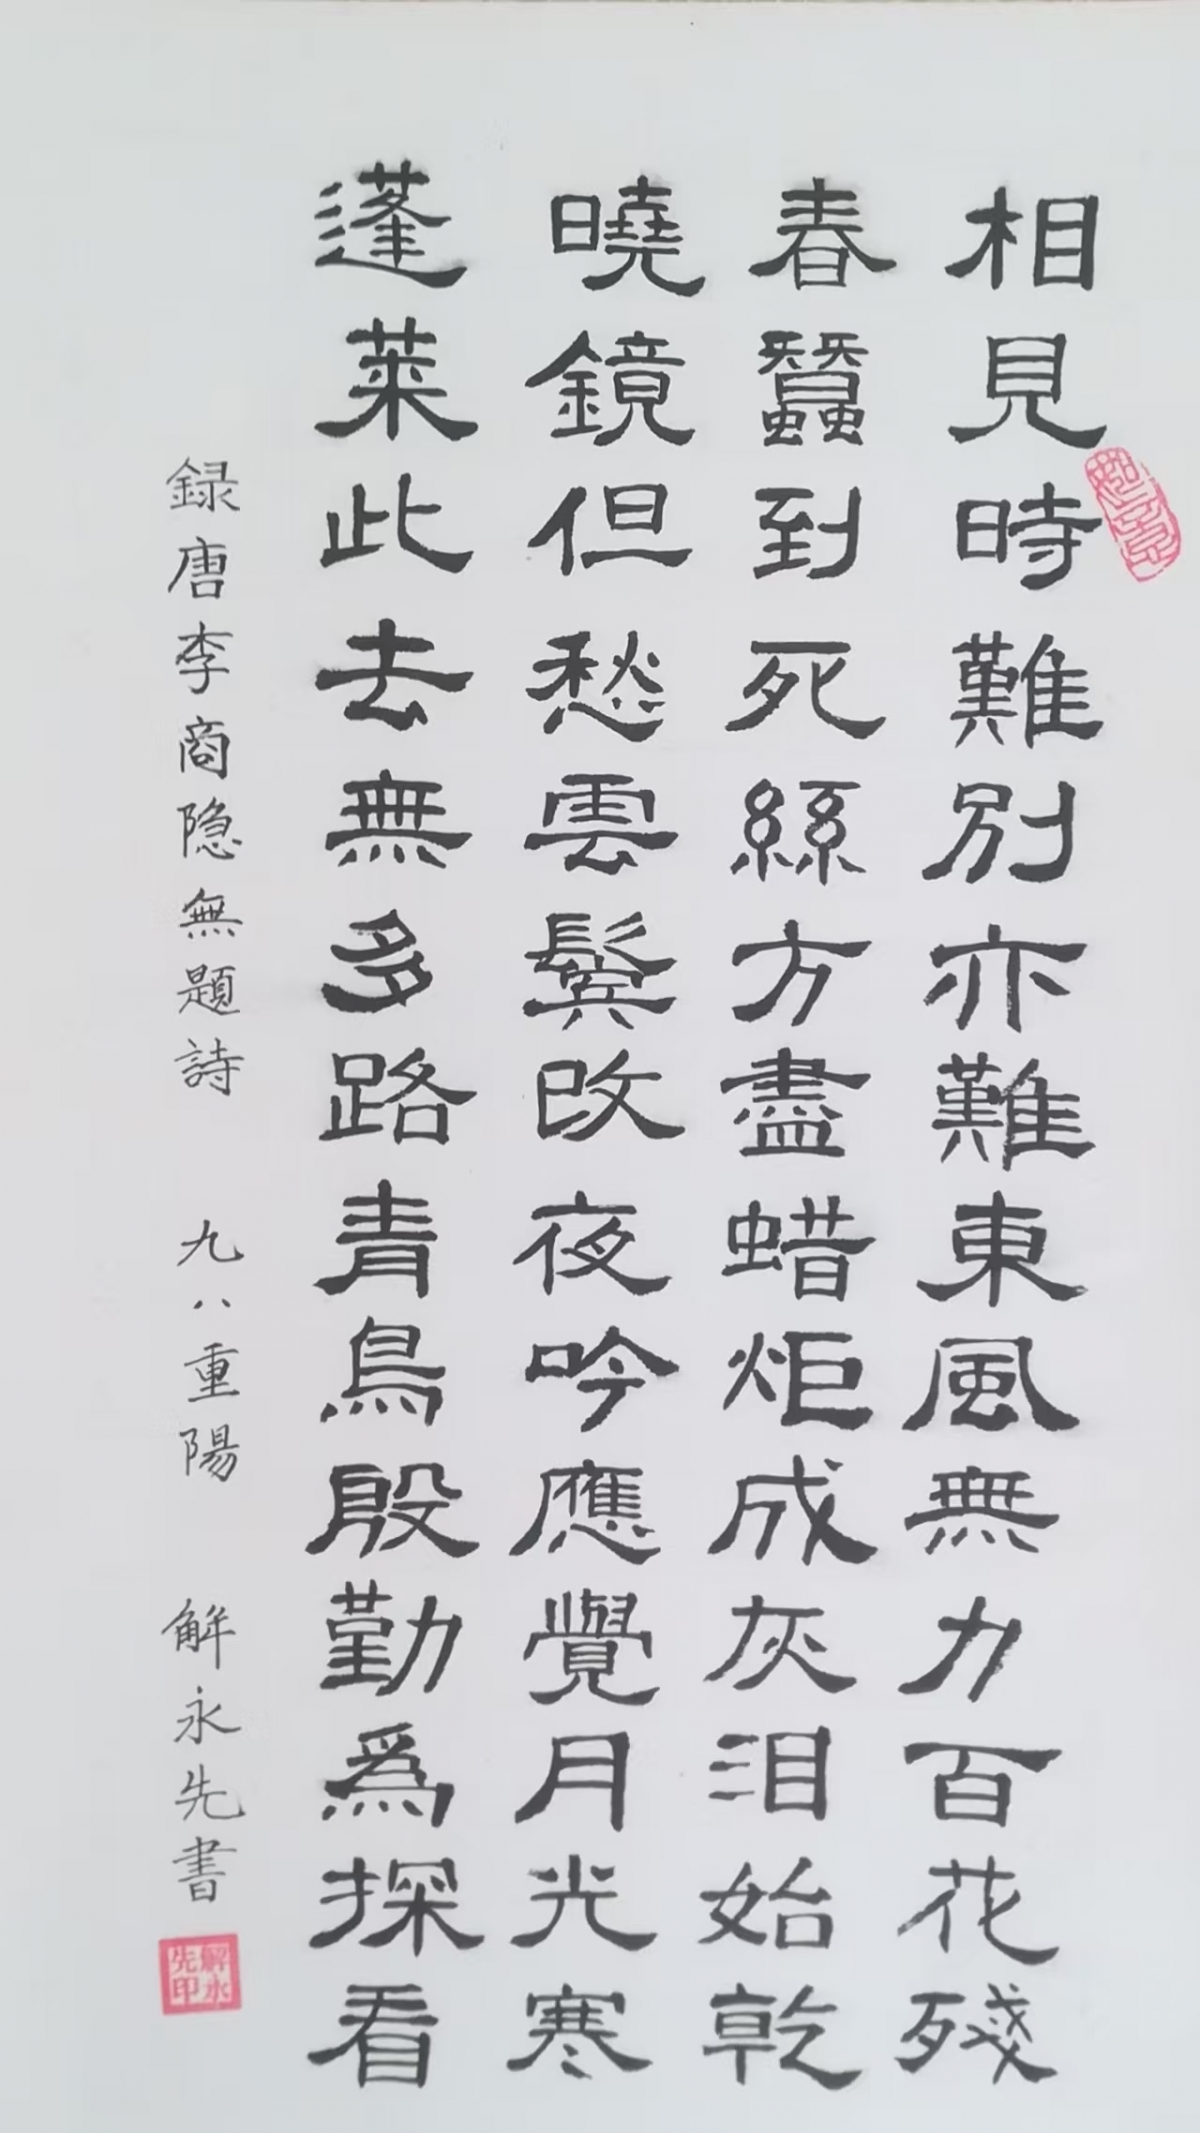 相見時難別亦難東風無力百花殘
春蠶到死絲方盡蜡炬成灰泪始乾
曉鏡但愁雲鬢改夜吟應覺月光寒
蓬萊此去無多路青鳥殷勤爲探看
録唐李商隐無題詩 九八重陽 解永先書
解永先印